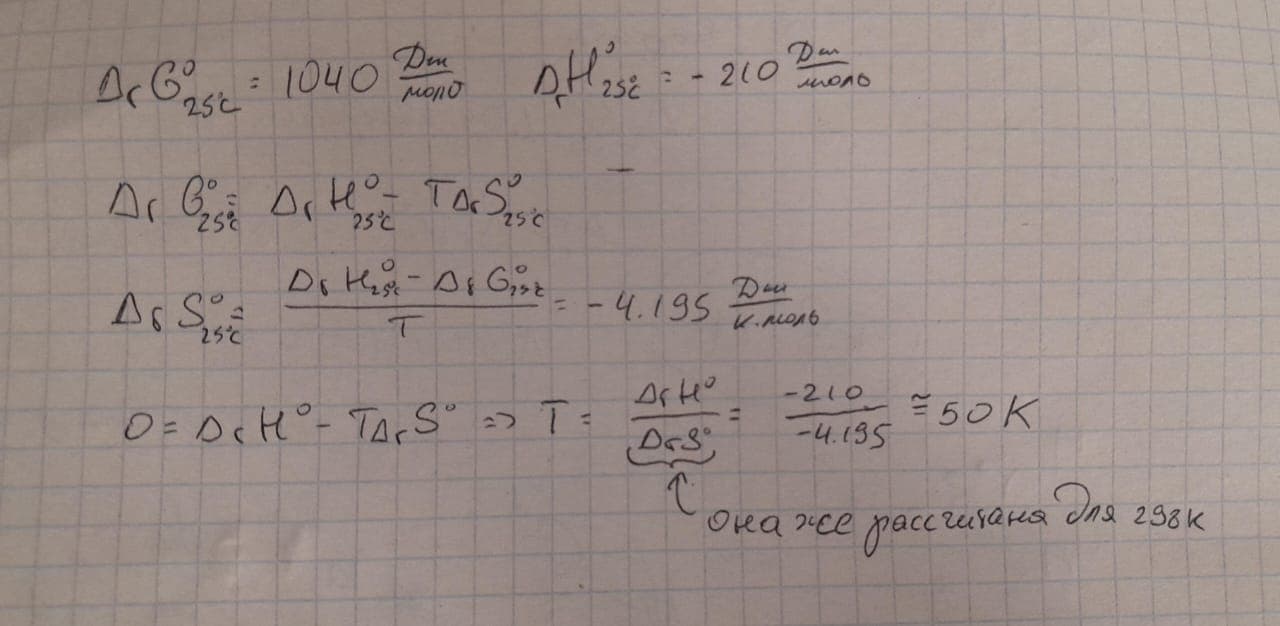 ΔrG°25°C = 1040 Дж/моль ΔrH°25°C = -210 Дж/моль
ΔrG°25°C = ΔrH°25°C - TΔrS°25°C
ΔrS°25°C = (ΔrH°25°C - ΔrG°25°C)/T = -4.195 Дж/К·моль
0 = ΔrH° - TΔrS° => T = ΔrH°/ΔrS° = -210/-4.195 ≅ 50 K
она же рассчитана для 298 К